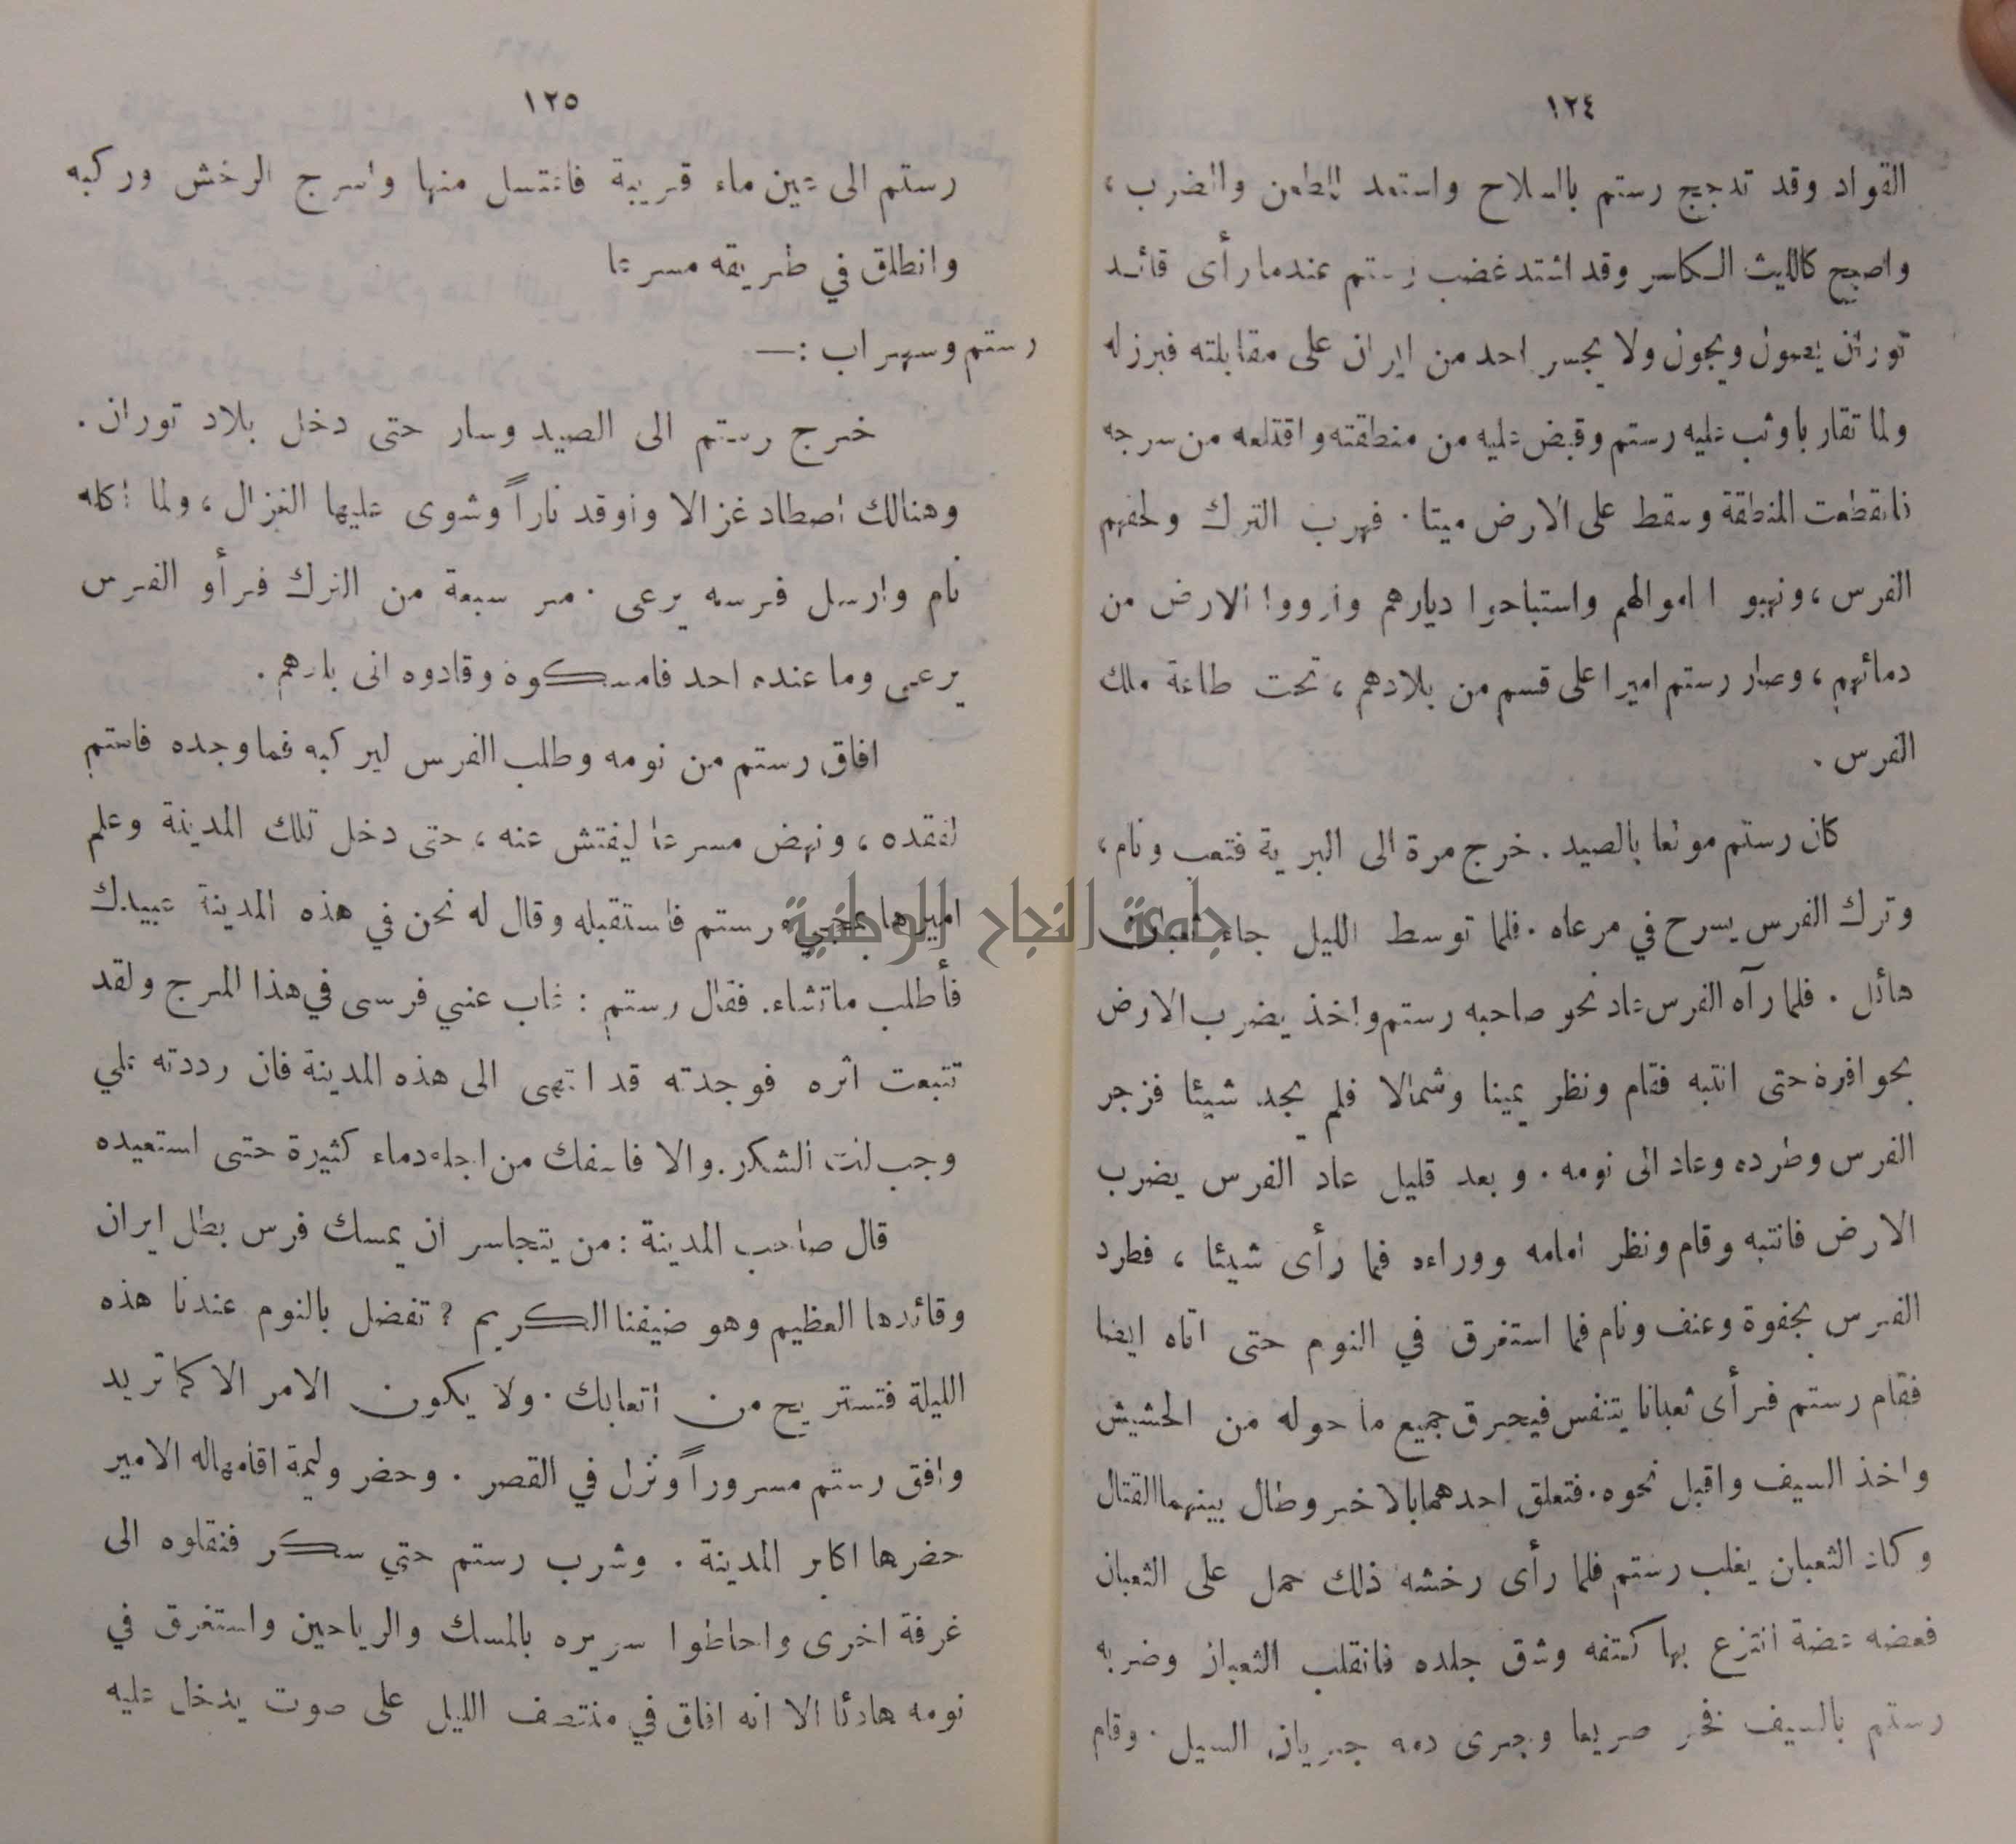 ١٢٤
القواد وقد تدجج رستم بالسلاح واستعد للطعن والضرب ،
واصبح كالليث الكاسر وقد اشتد غضب رستم عندما رأى قائد
توران يصول ويجول ولا يجسر احد من ايران على مقابلته فبرز له
ولما تقاربا وثب عليه رستم وقبض عليه من منطقته واقتلعه من سرجه
فانقطعت المنطقة وسقط على الارض ميتا . فهرب الترك ولحقهم
الفرس ، ونهبو ا اموالهم واستباحوا ديارهم وارووا الارض من
دمائهم ، وصار رستم اميرا على قسم من بلادهم ، تحت طاعة ملك
الفرس .
كان رستم مولعا بالصيد . خرج مرة الى البرية فتعب ونام ،
وترك الفرس يسرح في مرعاه . فلما توسط الليل جاء ثعبان
هائل . فلما رآه الفرس عاد نحو صاحبه رستم واخذ يضرب الارض
بحوافره حتى انتبه فقام ونظر يمينا وشمالا فلم يجد شيئا فزجر
الفرس وطرده وعاد الى نومه . وبعد قليل عاد الفرس يضرب
الارض فانتبه وقام ونظر امامه ووراءه فما رأى شيئا ، فطرد
الفرس بجفوة وعنف ونام فما استغرق في النوم حتى اتاه ايضا
فقام رستم فرأى ثعبانا يتنفس فيحرق جميع ما حوله من الحشيش
واخذ السيف واقبل نحوه . فتعلق احدهما بالاخر وطال بينهما القتال
وكاد الثعبان يغلب رستم فلما رأى رخشه ذلك حمل على الثعبان
فعضه عضة انتزع بها كتفه وشق جلده فانقلب الثعبان وضربه
رستم بالسيف فخر صريعا وجرى دمه جريان السيل . وقام
١٢٥
رستم الى عين ماء قريبة فاغتسل منها واسرج الرخش وركبه
وانطلق في طريقه مسرعا
رستم وسهراب : —
خرج رستم الى الصيد وسار حتى دخل بلاد توران .
وهنالك اصطاد غزالا واوقد ناراً وشوى عليها الغزال ، ولما اكله
نام وارسل فرسه يرعى . مر سبعة من الترك فرأو الفرس
يرعى وما عنده احد فامسكوه وقادوه الى بلدهم .
افاق رستم من نومه وطلب الفرس ليركبه فما وجده فاهتم
لفقده ، ونهض مسرعا ليفتش عنه ، حتى دخل تلك المدينة وعلم
اميرها بمجيء رستم فاستقبله وقال له نحن في هذه المدينة عبيدك
فأطلب ماتشاء . فقال رستم : غاب عني فرسى في هذا المرج ولقد
تتبعت اثره فوجدته قد انتهى الى هذه المدينة فان رددته علي
وجب لك الشكر . والا فاسفك من اجله دماء كثيرة حتى استعيده
قال صاحب المدينة : من يتجاسر ان يمسك فرس بطل ايران
وقائدها العظيم وهو ضيفنا الكريم ؟ تفضل بالنوم عندنا هذه
الليلة فتستريح من اتعابك . ولا يكون الامر الا كما تريد
وافق رستم مسروراً ونزل في القصر . وحضر وليمة اقامها له الامير
حضرها اكابر المدينة . وشرب رستم حتي سكر فنقلوه الى
غرفة اخرى واحاطوا سريره بالمسك والرياحين واستغرق في
نومه هادئا الا انه افاق في منتصف الليل على صوت يدخل عليه
جامعة النجاح الوطنية